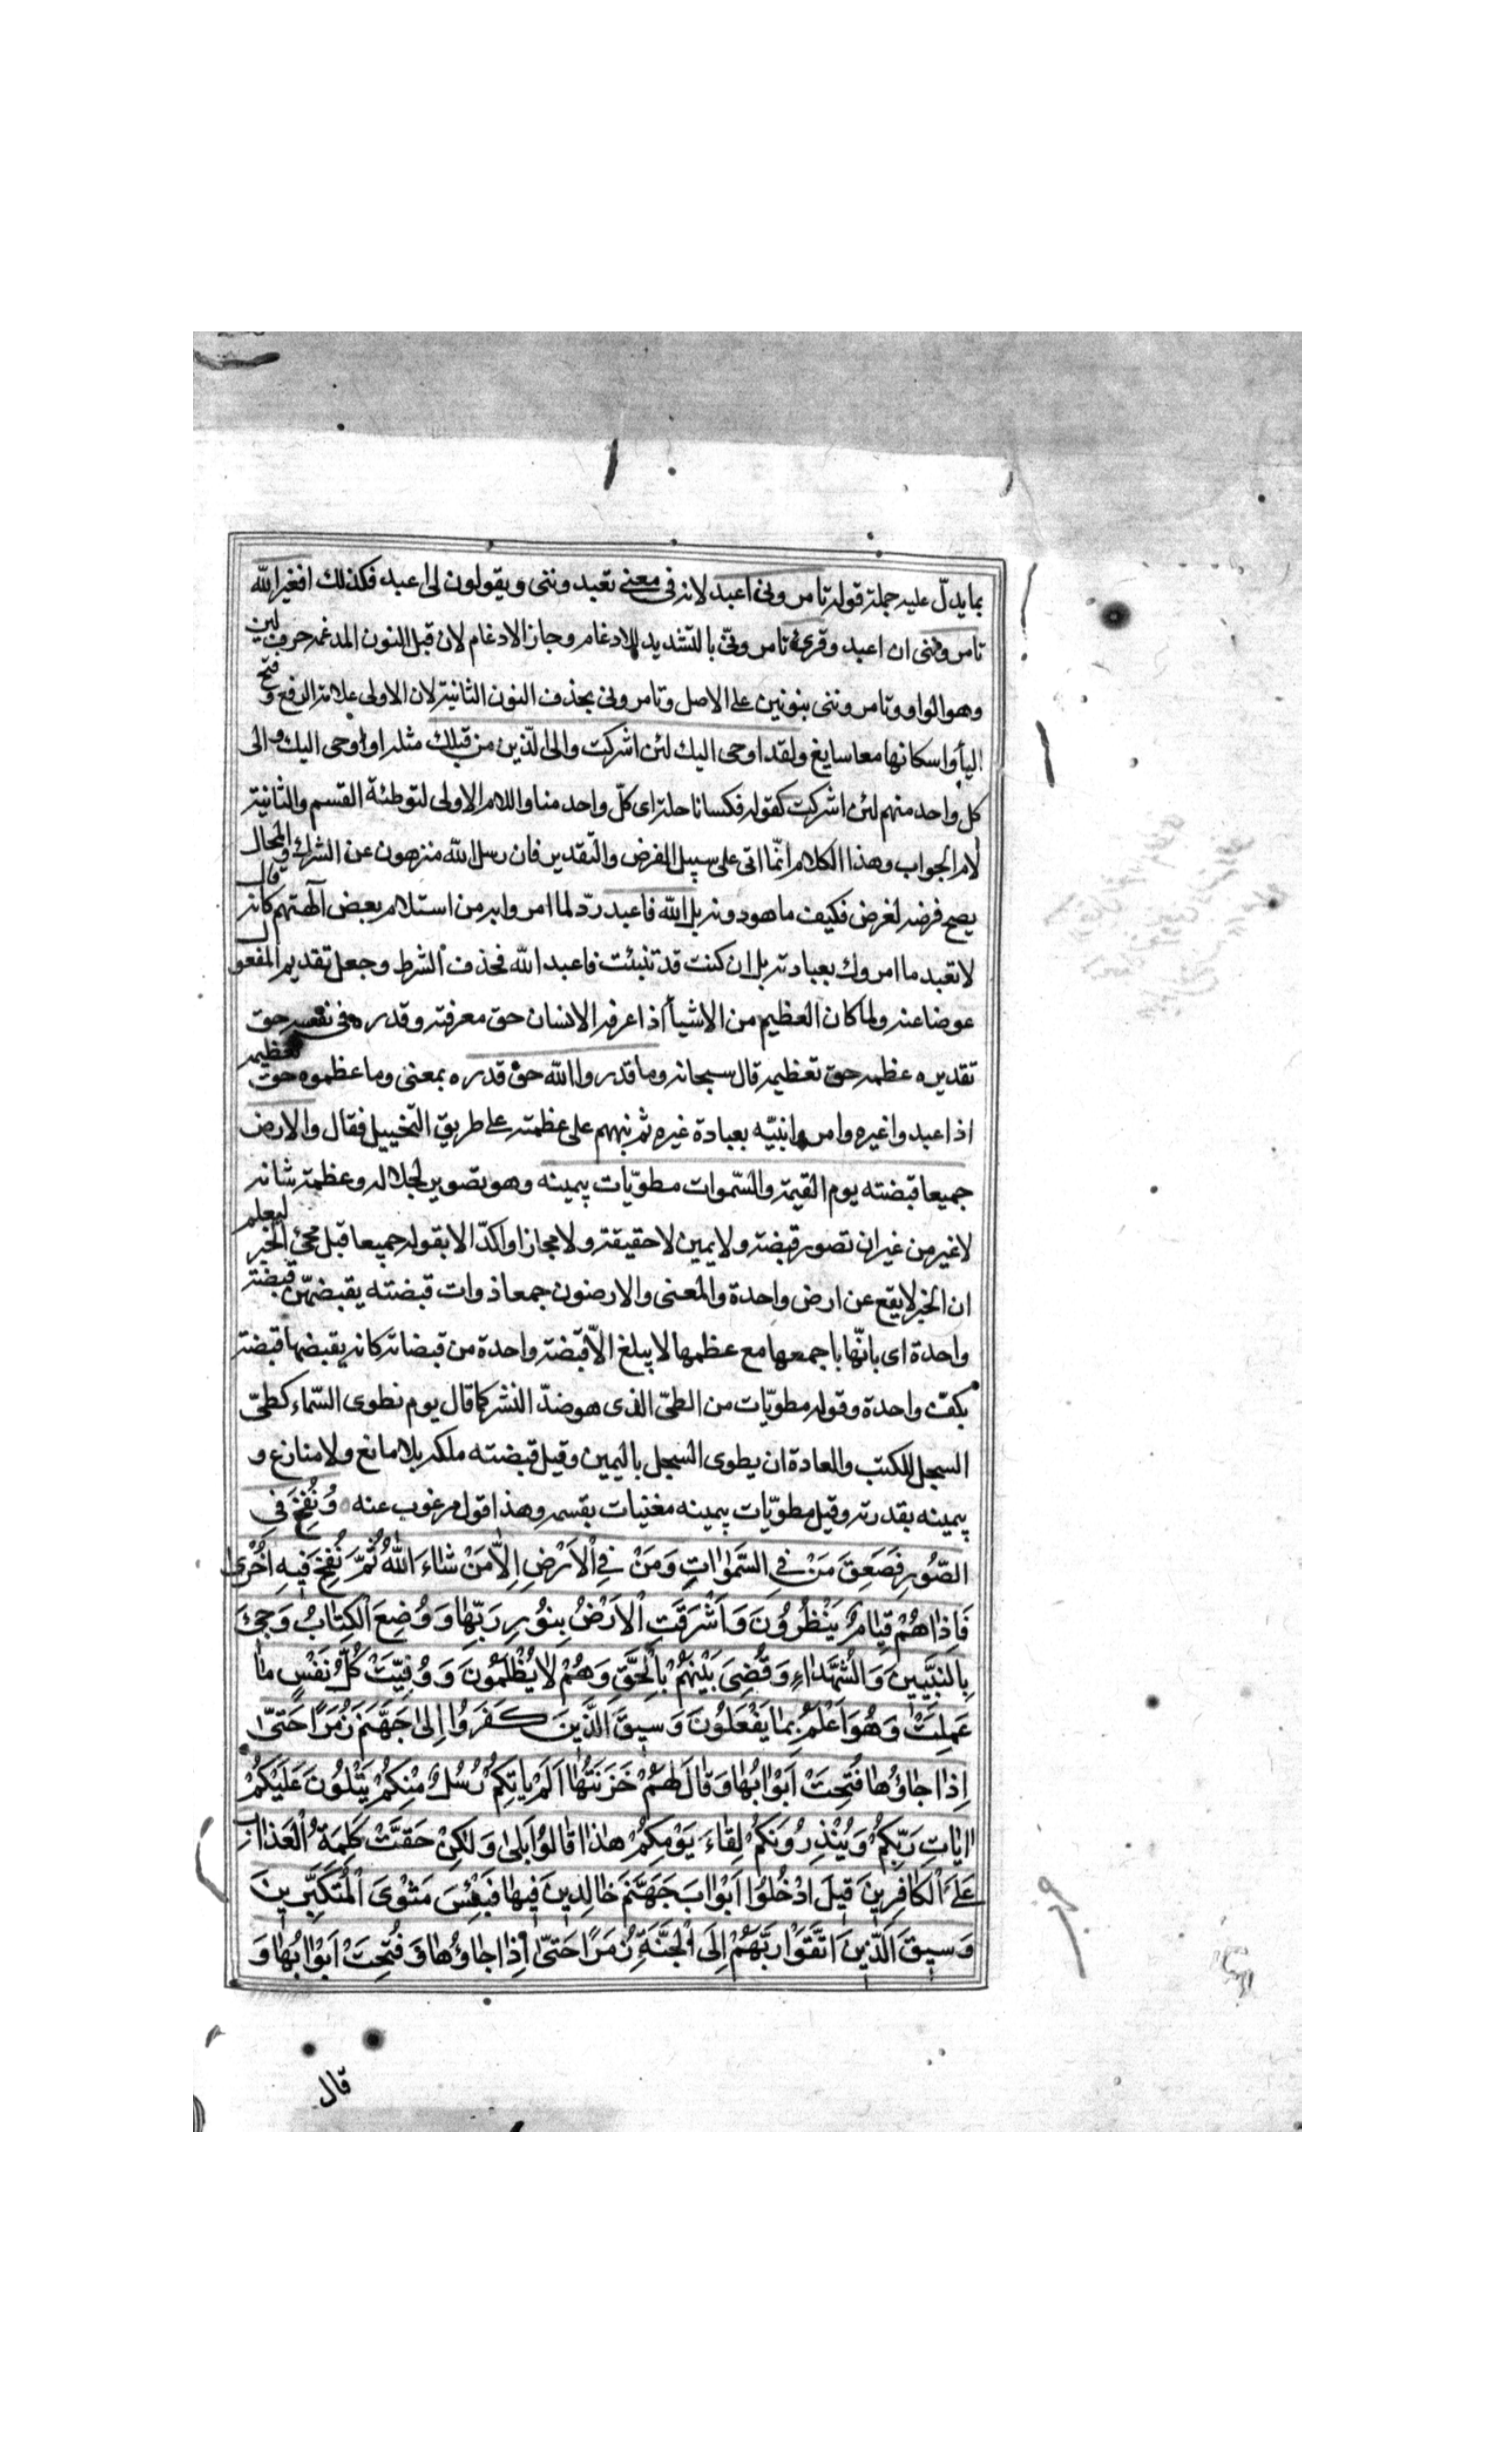 بما يدلّ عليه جملة قوله تامرونى اعبد لانه فى معنى تعبدوننى ويقولون لى اعبد فكذلك افغير الله
تامروننى ان اعبد وقرئ تامرونّى بالتشديد للادغام وجاز الادغام لان قبل النون المدغمه حرف لين
وهو الواو وتامروننى بنونين على الاصل وتامرونى بحذف النون الثانية لان الاولى علامة الرفع وفتح
اليأ واسكانها معا سايغ ولقد اوحى اليك لئن اشركت والى الّذين من قبلك مثله او اوحى اليك والى
كل واحد منهم لئن اشركت كقوله فكسانا حلة اى كلّ واحد منا واللام الاولى لتوطئة القسم والثانية
لام الجواب وهذا الكلام انّما اتى على سبيل الفرض والتقدير فان رسل الله منزهون عن الشرك والمحال
يصح فرضه لغرض فكيف ما هو دونه بل الله فاعبد ردّ لما امروا به من استلام بعض آلهتهم كانه قال
لا تعبد ما امروك بعبادته بل ان كنت قد تنبئت فاعبد الله فحذف الشرط وجعل تقديم المفعول
عوضا عنه ولما كان العظيم من الاشيأ اذا عرفه الانسان حق معرفته وقدره فى نفسه حق
تقديره عظمه حق تعظيمه قال سبحانه وما قدروا الله حق قدره بمعنى وما عظموه حق تعظيمه
اذا عبدوا غيره وامروا نبيّه بعبادة غيره ثم نبههم على عظمته على طريق التخييل فقال والارض
جميعا قبضته يوم القيمة والسّموات مطويّات بيمينه وهو تصوير لجلاله وعظمة شانه
لا غير من غير ان تصور قبضة ولا يمين لا حقيقة ولا مجازا واكدّ الا بقوله جميعا قبل مجئ الخبر ليعلم
ان الخبر لا يقع عن ارض واحدة والمعنى والارضون جمعا ذوات قبضته يقبضهنّ قبضة
واحدة اى بانّها باجمعها مع عظمها لا يبلغ الاّ قبضة واحدة من قبضاته كانه يقبضها قبضة
بكفّ واحدة وقوله مطويّات من الطىّ الذى هو ضدّ النشر كما قال يوم نطوى السّماء كطىّ
السجل للكتب والعادة ان يطوى السجل باليمين وقيل قبضته ملكه بلا مانع ولا منازع و
بيمينه بقدرته وقيل مطويّات بيمينه مفنيات بقسمه وهذا قول مرغوب عنه وَنُفِخَ فِى
الصُّورِ فَصَعِقَ مَنْ فِى السَّمٰوٰاتِ وَمَنْ فِى الْاَرْضِ اِلاّٰ مَنْ شٰاءَ اللّٰهُ ثُمَّ نُفِخَ فيهِ اُخْرىٰ
فَاِذٰا هُمْ قِيٰامٌ يَنْظُرُونَ وَاَشْرَقَتِ الْاَرْضُ بِنُورِ رَبِّهٰا وَوُضِعَ الْكِتٰابُ وَجئَ
بِالنَّبِيّينَ وَالشُّهَدٰاءِ وَقُضِىَ بَيْنَهُمْ بِالْحَقِّ وَهُمْ لٰا يُظْلَمُونَ وَوُفِّيَتْ كُلُّ نَفْسٍ مٰا
عَمِلَتْ وَهُوَ اَعْلَمُ بِمٰا يَفْعَلُونَ وَسيقَ الَّذينَ كَفَرُوا اِلىٰ جَهَنَّمَ زُمَرًا حَتّىٰ
اِذٰا جٰاؤُهٰا فُتِحَتْ اَبْوٰابُهٰا وَقٰالَ لَهُمْ خَزَنَتُهٰا اَلَمْ يٰاتِكُمْ رُسُلٌ مِنْكُمْ يَتْلُونَ عَلَيْكُمْ
اٰيٰاتِ رَبِّكُمْ وَيُنْذِرُونَكُمْ لِقٰاءَ يَوْمِكُمْ هٰذٰا قٰالُوا بَلىٰ وَلٰكِنْ حَقَّتْ كَلِمَةُ الْعَذٰابِ
عَلَى الْكٰافِرينَ قيلَ ادْخُلُوا اَبْوٰابَ جَهَنَّمَ خٰالِدينَ فيهٰا فَبِئْسَ مَثْوَى الْمُتَكَبِّرينَ
وَسيقَ الَّذينَ اتَّقَوْا رَبَّهُمْ اِلَى الْجَنَّةِ زُمَرًا حَتّىٰ اِذٰا جٰاؤُهٰا وَفُتِحَتْ اَبْوٰابُهٰا وَ
قال